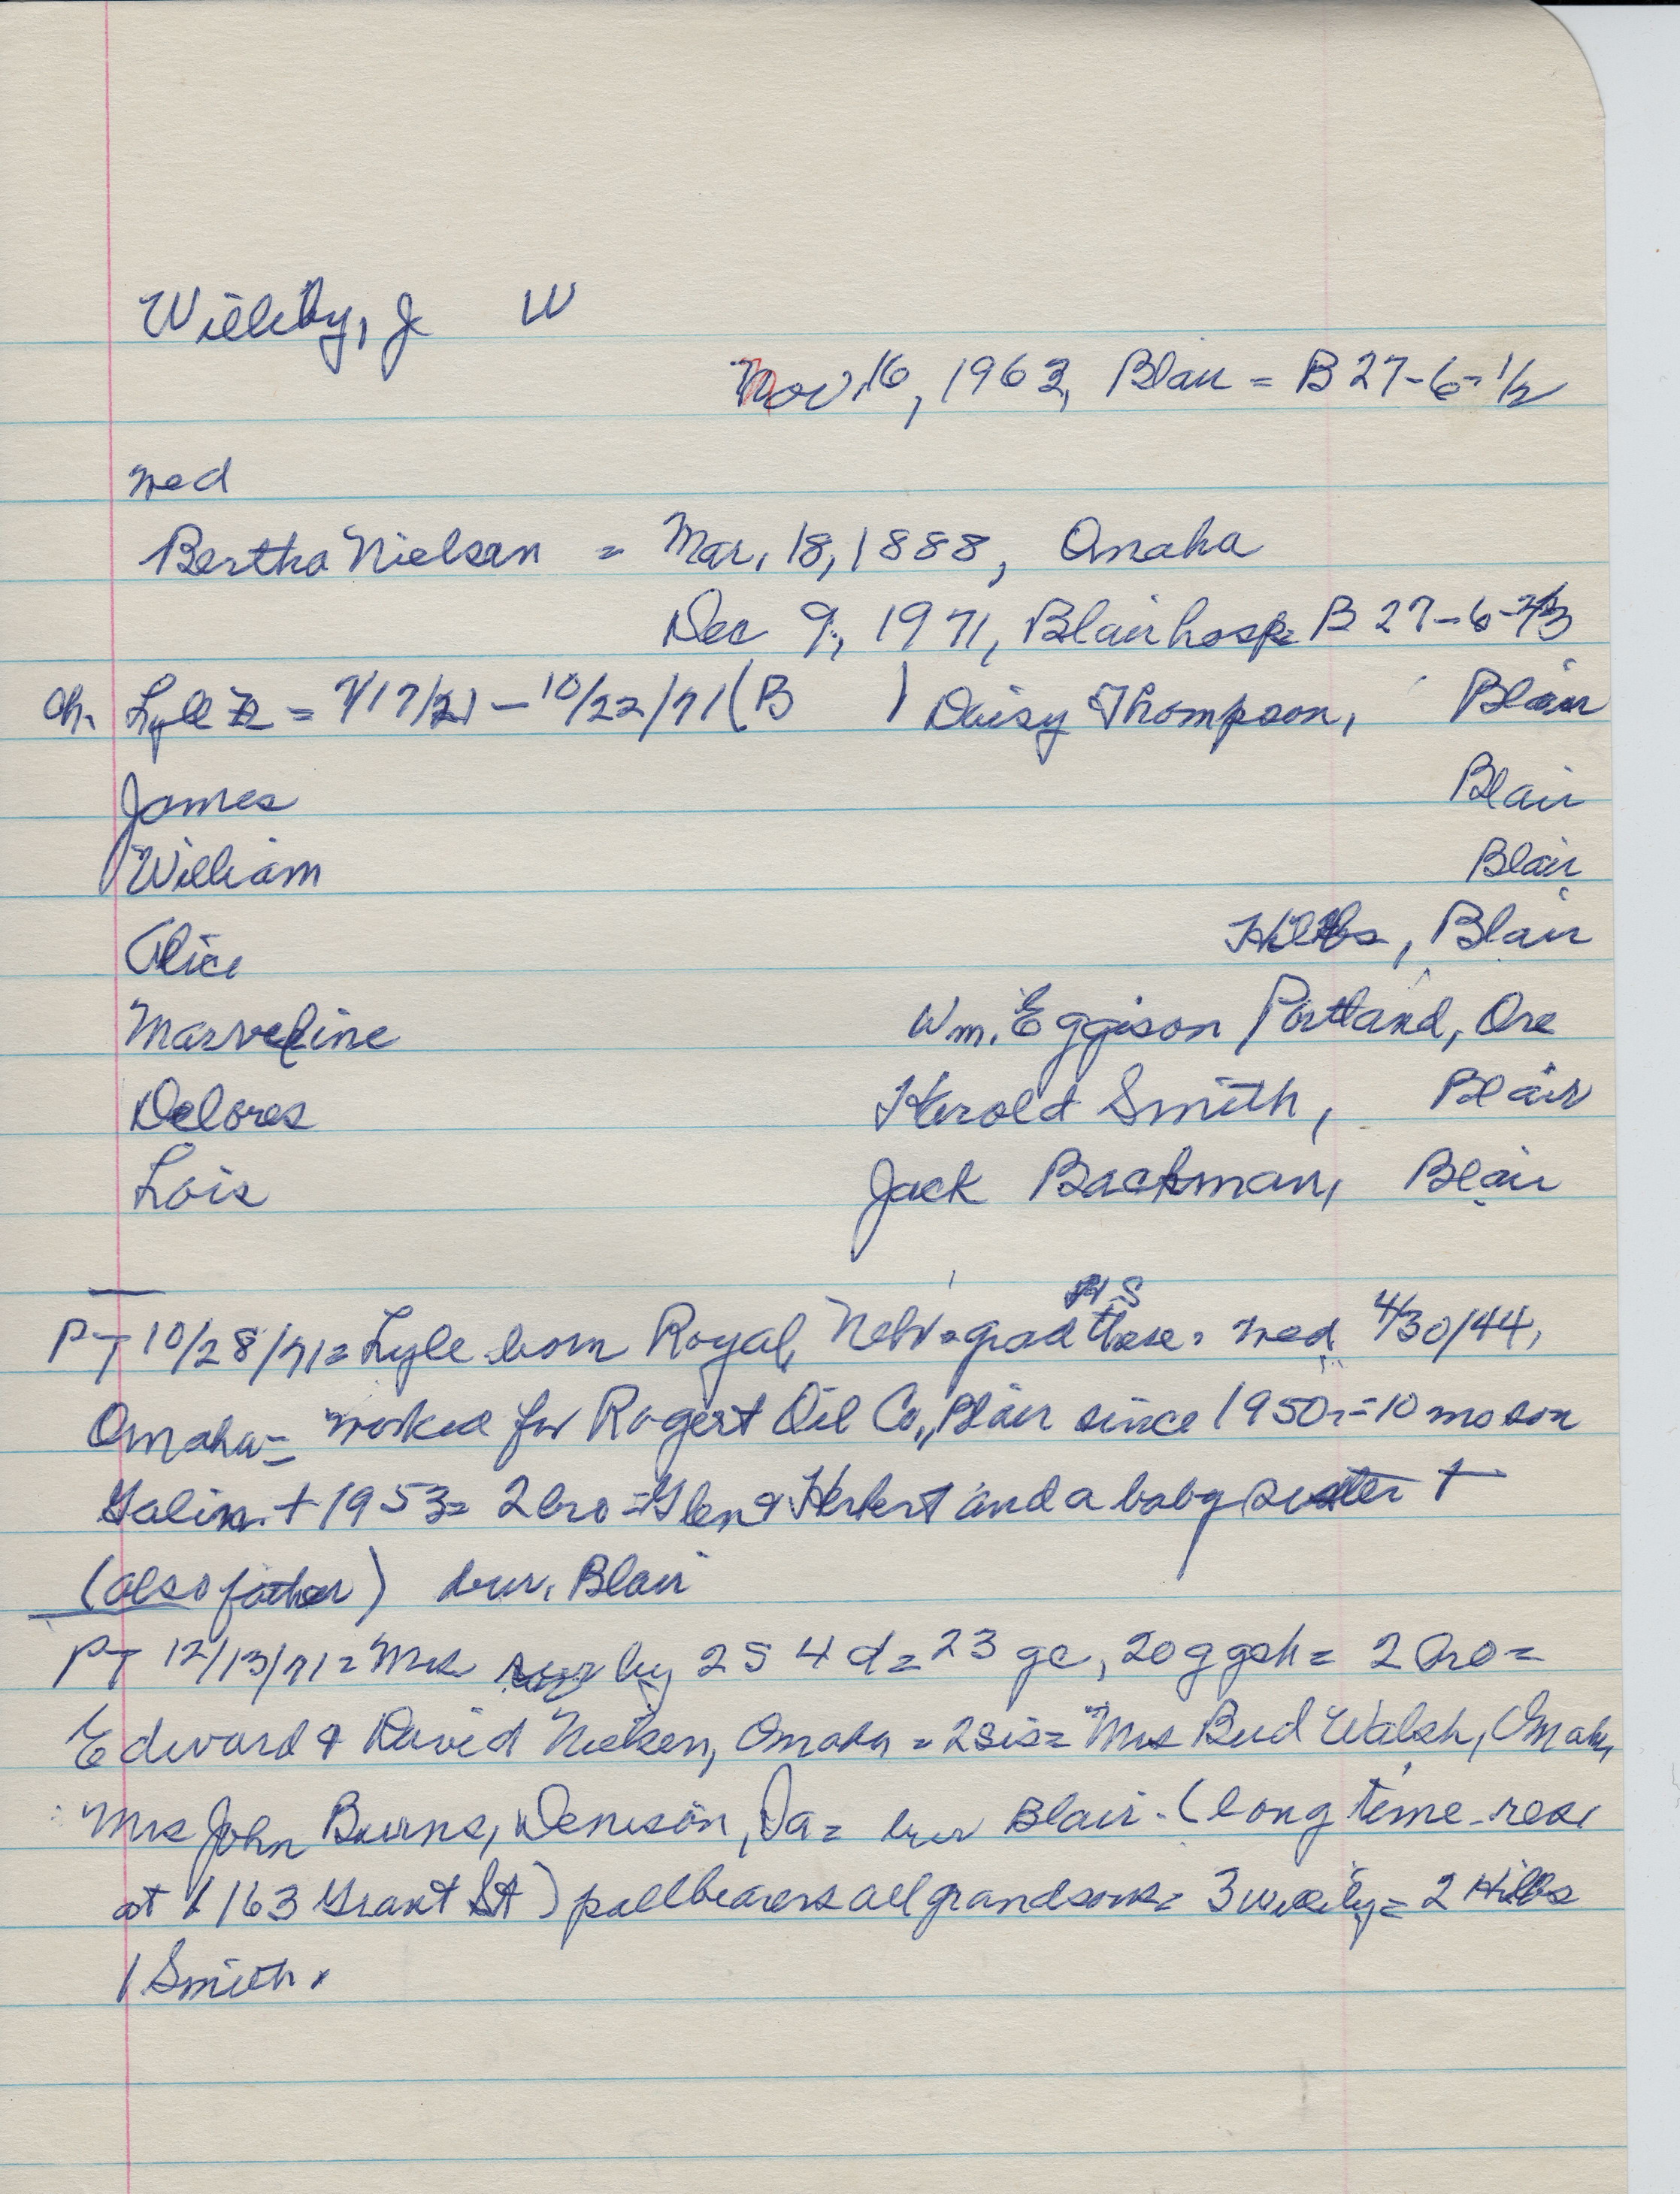 J W
Nov 16, 1963, Blair = B 27-6-1/2
wed
Bertha Nielsen = Mar. 18, 1888, Omaha
Dec 9, 1971, Blair hosp = B 27-6-
ch. Lyle = 7/17/21 - 10/22/71 (B ) Daisy Thompson, Blair
James Blair
William Blair
Alice Hilbs, Blair
Marveline Wm. Eggison Portland, Ore
Delores Harold Smith, Blair
Lois Jack Backman, Blair
HS
PT 10/28/71 = Lyle born Royal, Nebr = grad there. wed 4/30/44,
Omaha = worked for Rogert Oil Co., Blair since 1950. = 10 mo son
Galin + 1953 = 2 bro = Glen & Herbert and a baby sister +
(also father) bur. Blair
PT 12/13/71 = Mrs sur by 2 S 4 d = 23 gc, 20 ggch = 2 bro =
Edward & David Nielsen, Omaha = 2 sis = Mrs Bud Walsh, Omaha,
Mrs John Burns, Denison, Ia = bur Blair - (long time res
at 1163 Grant St) pallbearers all grandsons = 3 = 2 Hilbs
1 Smith.